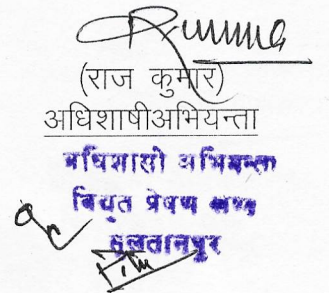 (राज कुमार)
अधिशाषीअभियन्ता
अधिशासी अभियन्ता
विद्युत प्रेषण खण्ड
सुलतानपुर